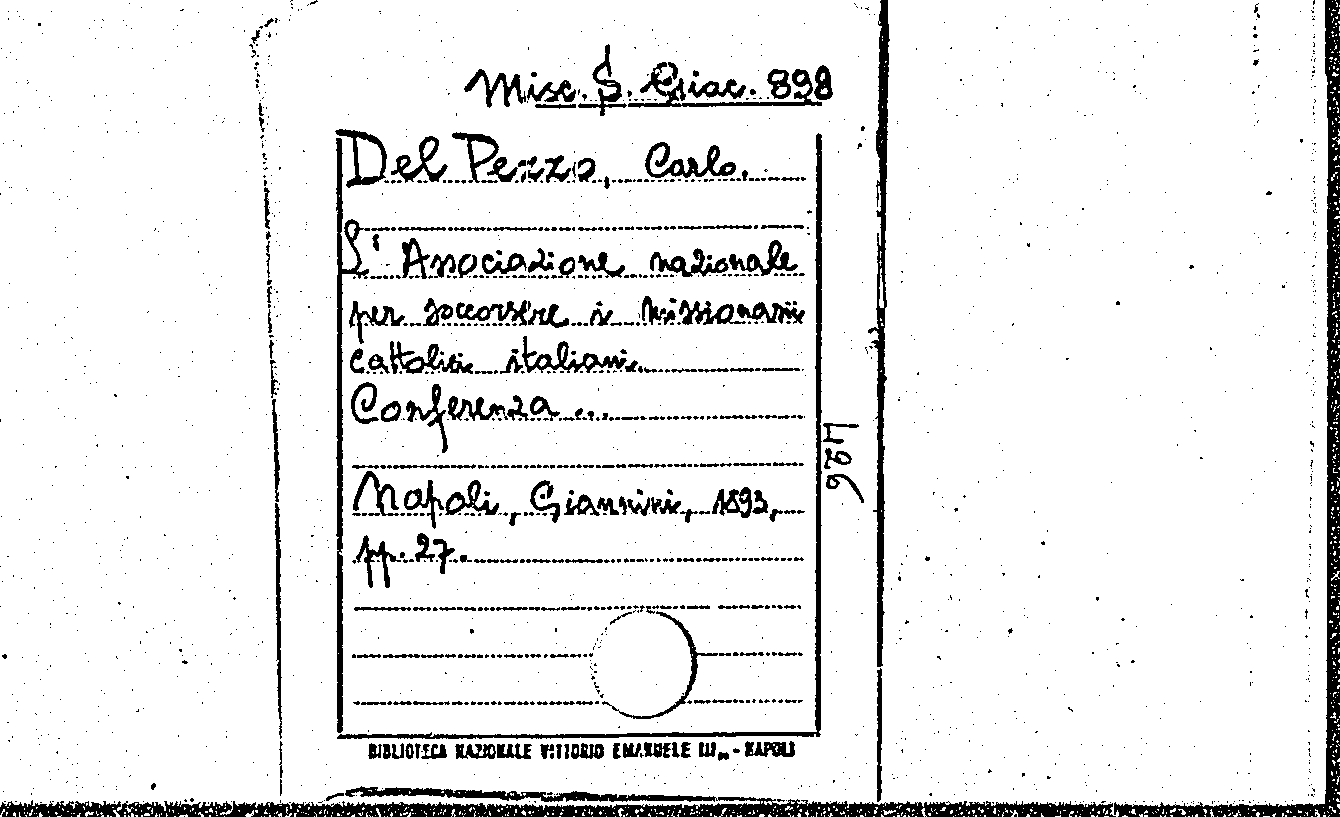 Misc. S. Giac. 898
Del Pezzo, Carlo.
L' Associazione nazionale
per soccorrere i missionarii
cattolici italiani.
Conferenza ...
Napoli, Giannini, 1893,
pp. 27.
426
BIBLIOTECA NAZIONALE VITTORIO EMANUELE III„ - NAPOLI